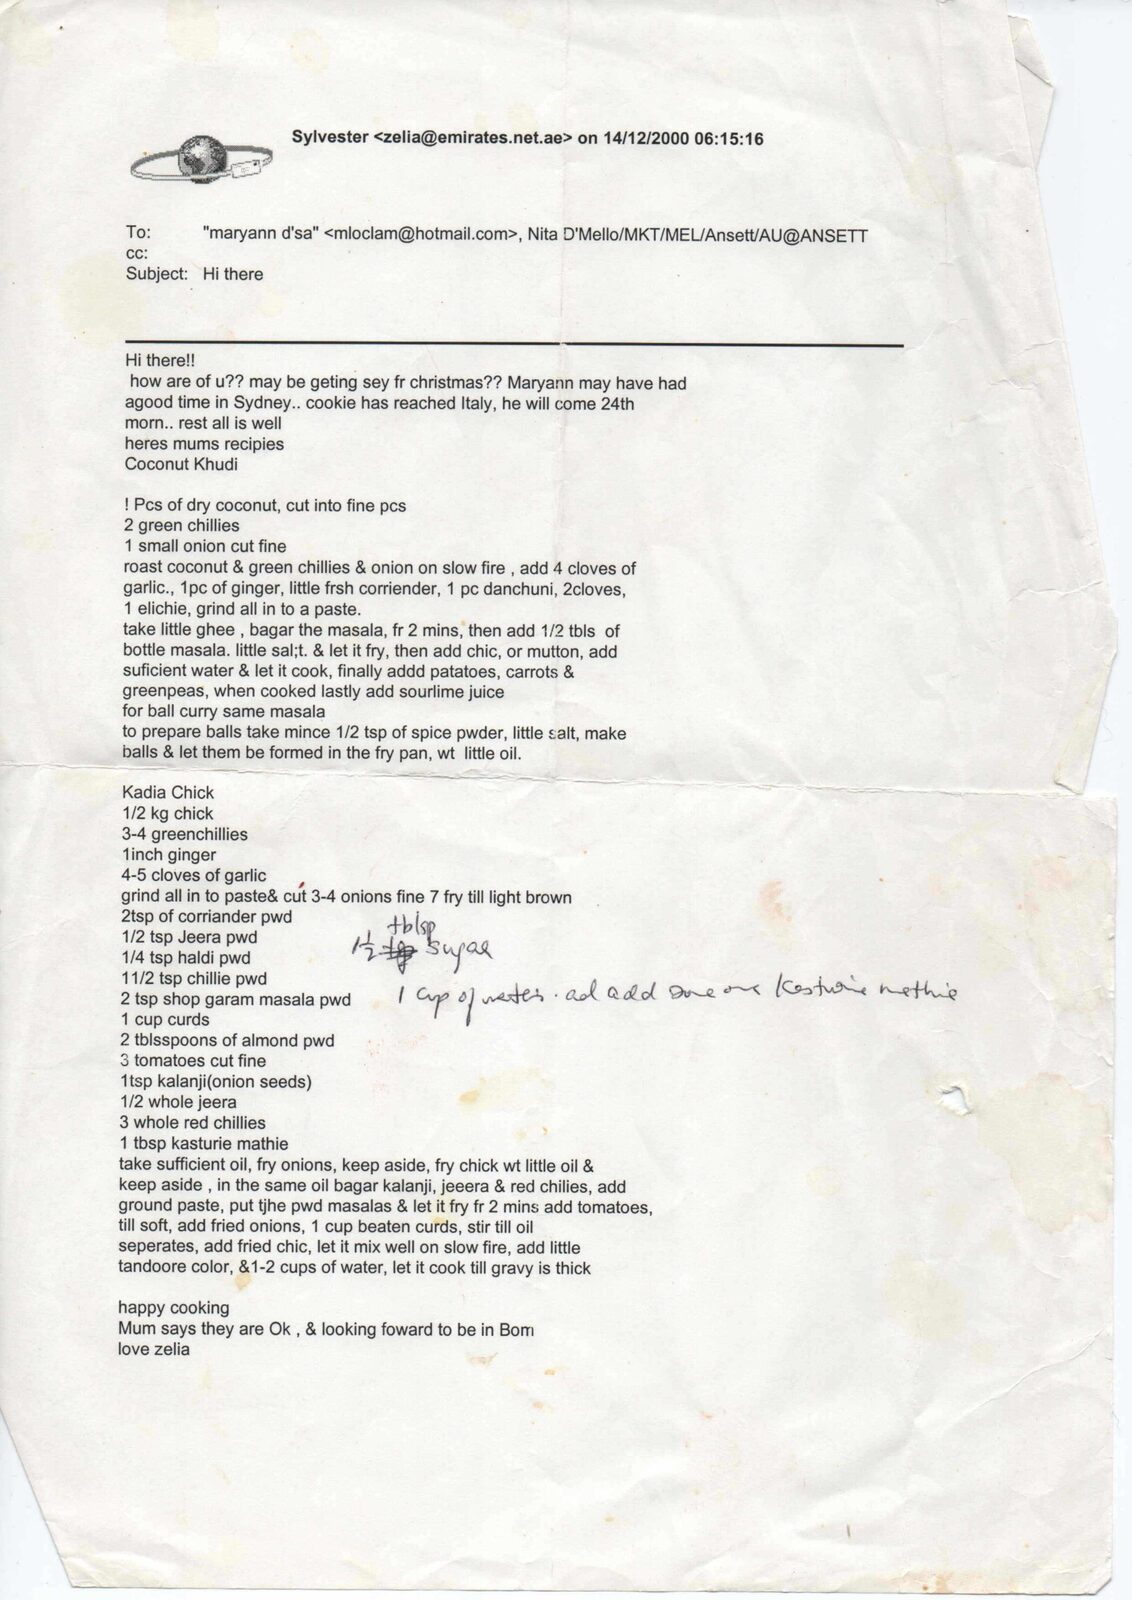 Sylvester <zelia@emirates.net.ae> on 14/12/2000 06:15:16
To: "maryann d'sa" <mloclam@hotmail.com>, Nita D'Mello/MKT/MEL/Ansett/AU@ANSETT
cc:
Subject: Hi there
Hi there!!
how are of u?? may be geting sey fr christmas?? Maryann may have had
agood time in Sydney.. cookie has reached Italy, he will come 24th
morn.. rest all is well
heres mums recipies
Coconut Khudi
! Pcs of dry coconut, cut into fine pcs
2 green chillies
1 small onion cut fine
roast coconut & green chillies & onion on slow fire , add 4 cloves of
garlic., 1pc of ginger, little frsh corriender, 1 pc danchuni, 2cloves,
1 elichie, grind all in to a paste.
take little ghee , bagar the masala, fr 2 mins, then add 1/2 tbls of
bottle masala. little sal;t. & let it fry, then add chic, or mutton, add
suficient water & let it cook, finally addd patatoes, carrots &
greenpeas, when cooked lastly add sourlime juice
for ball curry same masala
to prepare balls take mince 1/2 tsp of spice pwder, little salt, make
balls & let them be formed in the fry pan, wt little oil.
Kadia Chick
1/2 kg chick
3-4 greenchillies
1inch ginger
4-5 cloves of garlic
grind all in to paste& cut 3-4 onions fine 7 fry till light brown
2tsp of corriander pwd
tblsp
1/2 tsp Jeera pwd
1½ sugar
1/4 tsp haldi pwd
11/2 tsp chillie pwd
2 tsp shop garam masala pwd 1 cup of water. ad add some Kasturie methie
1 cup curds
2 tblsspoons of almond pwd
3 tomatoes cut fine
1tsp kalanji(onion seeds)
1/2 whole jeera
3 whole red chillies
1 tbsp kasturie mathie
take sufficient oil, fry onions, keep aside, fry chick wt little oil &
keep aside , in the same oil bagar kalanji, jeeera & red chilies, add
ground paste, put tjhe pwd masalas & let it fry fr 2 mins add tomatoes,
till soft, add fried onions, 1 cup beaten curds, stir till oil
seperates, add fried chic, let it mix well on slow fire, add little
tandoore color, &1-2 cups of water, let it cook till gravy is thick
happy cooking
Mum says they are Ok , & looking foward to be in Bom
love zelia